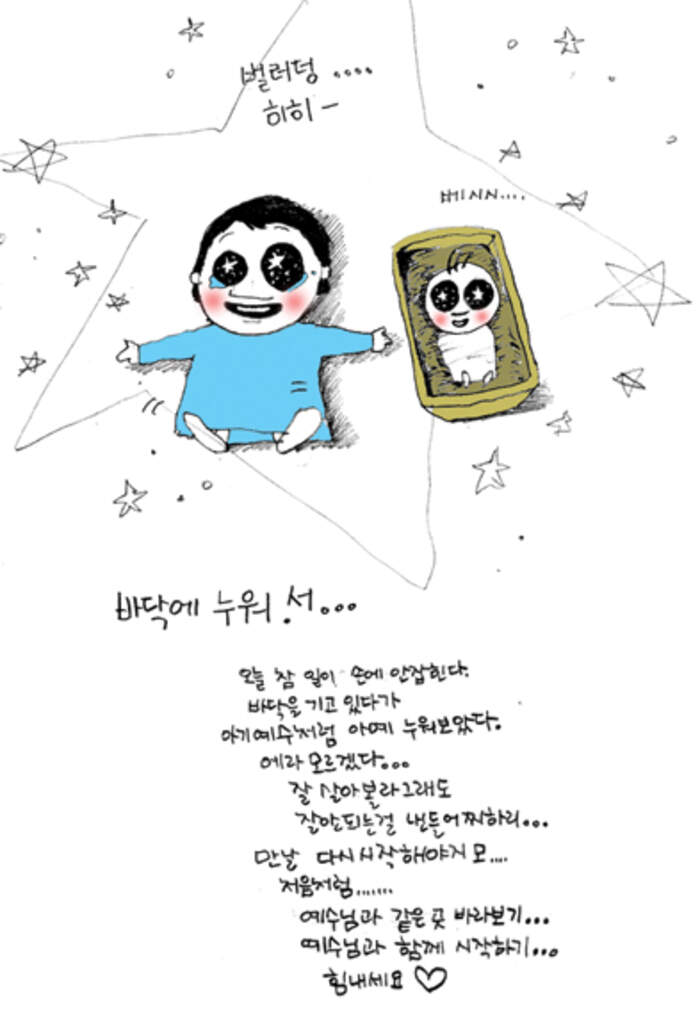 벌러덩 ....
히히 -
베시시....
바닥에 누워서...
오늘 참 일이 손에 안잡힌다.
바닥을 기고 있다가
아기예수처럼 아예 누워보았다.
에라 모르겠다...
잘 살아볼라그래도
잘안되는걸 낸들어찌하리...
만날 다시시작해야지 모....
처음처럼.......
예수님과 같은곳 바라보기...
예수님과 함께 시작하기...
힘내세요 ♡